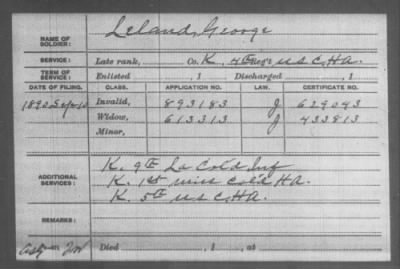 Leland, George
NAME OF SOLDIER:
SERVICE: Late rank, Co. K, 4th Reg't U S C, H A.
TERM OF SERVICE: Enlisted , 1 Discharged , 1
DATE OF FILING. CLASS. APPLICATION NO. LAW. CERTIFICATE NO.
1890 Sep 10 Invalid, 893183 J 629043
Widow, 613313 J 433813
Minor,
K. 9th La Col'd Inf
ADDITIONAL SERVICES: K. 1st Miss Col'd H A.
K. 5th U S C, H A.
REMARKS:
Died , 1 , at